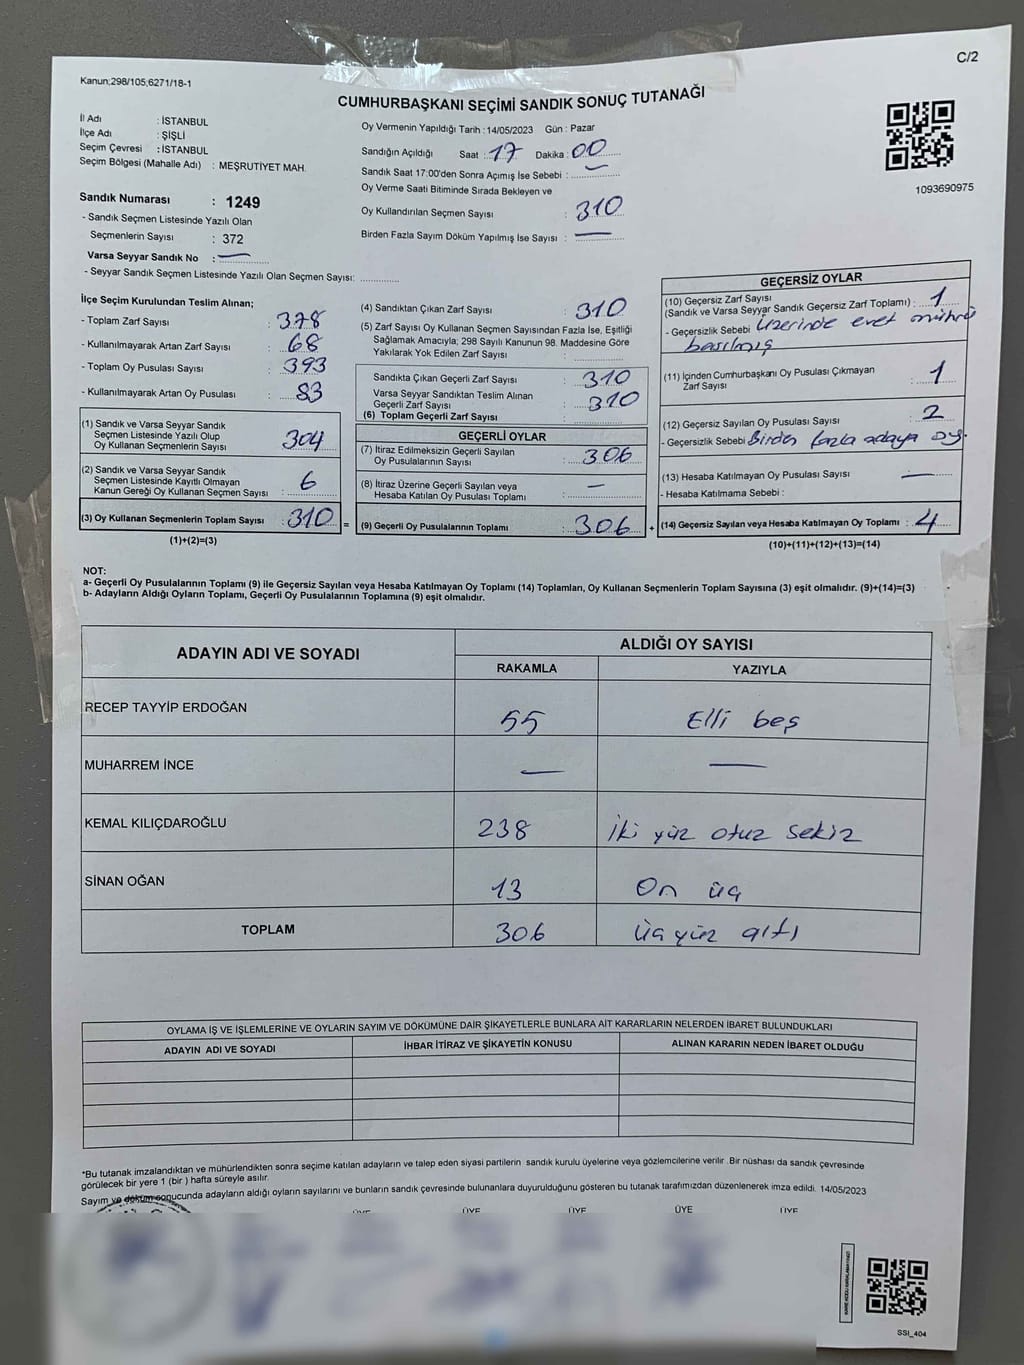 C/2
Kanun;298/105;6271/18-1
CUMHURBAŞKANI SEÇİMİ SANDIK SONUÇ TUTANAĞI
İl Adı : İSTANBUL
İlçe Adı : ŞİŞLİ
Seçim Çevresi : İSTANBUL
Seçim Bölgesi (Mahalle Adı) : MEŞRUTİYET MAH.
Sandık Numarası : 1249
- Sandık Seçmen Listesinde Yazılı Olan
Seçmenlerin Sayısı : 372
Varsa Seyyar Sandık No : —
- Seyyar Sandık Seçmen Listesinde Yazılı Olan Seçmen Sayısı: ............
Oy Vermenin Yapıldığı Tarih : 14/05/2023 Gün : Pazar
Sandığın Açıldığı Saat : 17 Dakika : 00
Sandık Saat 17:00'den Sonra Açımış İse Sebebi : —
Oy Verme Saati Bitiminde Sırada Bekleyen ve
Oy Kullandırılan Seçmen Sayısı : 310
Birden Fazla Sayım Döküm Yapılmış İse Sayısı : —
1093690975
İlçe Seçim Kurulundan Teslim Alınan;
- Toplam Zarf Sayısı : 378
- Kullanılmayarak Artan Zarf Sayısı : 68
- Toplam Oy Pusulası Sayısı : 393
- Kullanılmayarak Artan Oy Pusulası : 83
(1) Sandık ve Varsa Seyyar Sandık
Seçmen Listesinde Yazılı Olup
Oy Kullanan Seçmenlerin Sayısı : 304
(2) Sandık ve Varsa Seyyar Sandık
Seçmen Listesinde Kayıtlı Olmayan
Kanun Gereği Oy Kullanan Seçmen Sayısı : 6
(3) Oy Kullanan Seçmenlerin Toplam Sayısı : 310 =
(1)+(2)=(3)
(4) Sandıktan Çıkan Zarf Sayısı : 310
(5) Zarf Sayısı Oy Kullanan Seçmen Sayısından Fazla İse, Eşitliği
Sağlamak Amacıyla; 298 Sayılı Kanunun 98. Maddesine Göre
Yakılarak Yok Edilen Zarf Sayısı :
Sandıkta Çıkan Geçerli Zarf Sayısı : 310
Varsa Seyyar Sandıktan Teslim Alınan
Geçerli Zarf Sayısı : 310
(6) Toplam Geçerli Zarf Sayısı
GEÇERLİ OYLAR
(7) İtiraz Edilmeksizin Geçerli Sayılan
Oy Pusulalarının Sayısı : 306
(8) İtiraz Üzerine Geçerli Sayılan veya
Hesaba Katılan Oy Pusulası Toplamı : —
(9) Geçerli Oy Pusulalarının Toplamı : 306 +
GEÇERSİZ OYLAR
(10) Geçersiz Zarf Sayısı
(Sandık ve Varsa Seyyar Sandık Geçersiz Zarf Toplamı) : 1
- Geçersizlik Sebebi Üzerinde evet mührü
basılmış
(11) İçinden Cumhurbaşkanı Oy Pusulası Çıkmayan
Zarf Sayısı : 1
(12) Geçersiz Sayılan Oy Pusulası Sayısı : 2
- Geçersizlik Sebebi Birden fazla adaya oy.
(13) Hesaba Katılmayan Oy Pusulası Sayısı : —
- Hesaba Katılmama Sebebi :
(14) Geçersiz Sayılan veya Hesaba Katılmayan Oy Toplamı : 4
(10)+(11)+(12)+(13)=(14)
NOT:
a- Geçerli Oy Pusulalarının Toplamı (9) ile Geçersiz Sayılan veya Hesaba Katılmayan Oy Toplamı (14) Toplamları, Oy Kullanan Seçmenlerin Toplam Sayısına (3) eşit olmalıdır. (9)+(14)=(3)
b- Adayların Aldığı Oyların Toplamı, Geçerli Oy Pusulalarının Toplamına (9) eşit olmalıdır.
ADAYIN ADI VE SOYADI ALDIĞI OY SAYISI
RAKAMLA YAZIYLA
RECEP TAYYİP ERDOĞAN 55 Elli beş
MUHARREM İNCE — —
KEMAL KILIÇDAROĞLU 238 İki yüz otuz sekiz
SİNAN OĞAN 13 On üç
TOPLAM 306 Üç yüz altı
OYLAMA İŞ VE İŞLEMLERİNE VE OYLARIN SAYIM VE DÖKÜMÜNE DAİR ŞİKAYETLERLE BUNLARA AİT KARARLARIN NELERDEN İBARET BULUNDUKLARI
ADAYIN ADI VE SOYADI İHBAR İTİRAZ VE ŞİKAYETİN KONUSU ALINAN KARARIN NEDEN İBARET OLDUĞU
*Bu tutanak imzalandıktan ve mühürlendikten sonra seçime katılan adayların ve talep eden siyasi partilerin sandık kurulu üyelerine veya gözlemcilerine verilir. Bir nüshası da sandık çevresinde
görülecek bir yere 1 (bir ) hafta süreyle asılır.
Sayım ve döküm sonucunda adayların aldığı oyların sayılarını ve bunların sandık çevresinde bulunanlara duyurulduğunu gösteren bu tutanak tarafımızdan düzenlenerek imza edildi. 14/05/2023
ÜYE ÜYE ÜYE ÜYE ÜYE
SSI_404